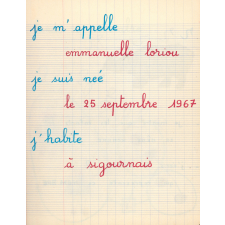 je m'appelle
emmanuelle loriou
je suis neé
le 25 septembre 1967
j'habite
à sigournais